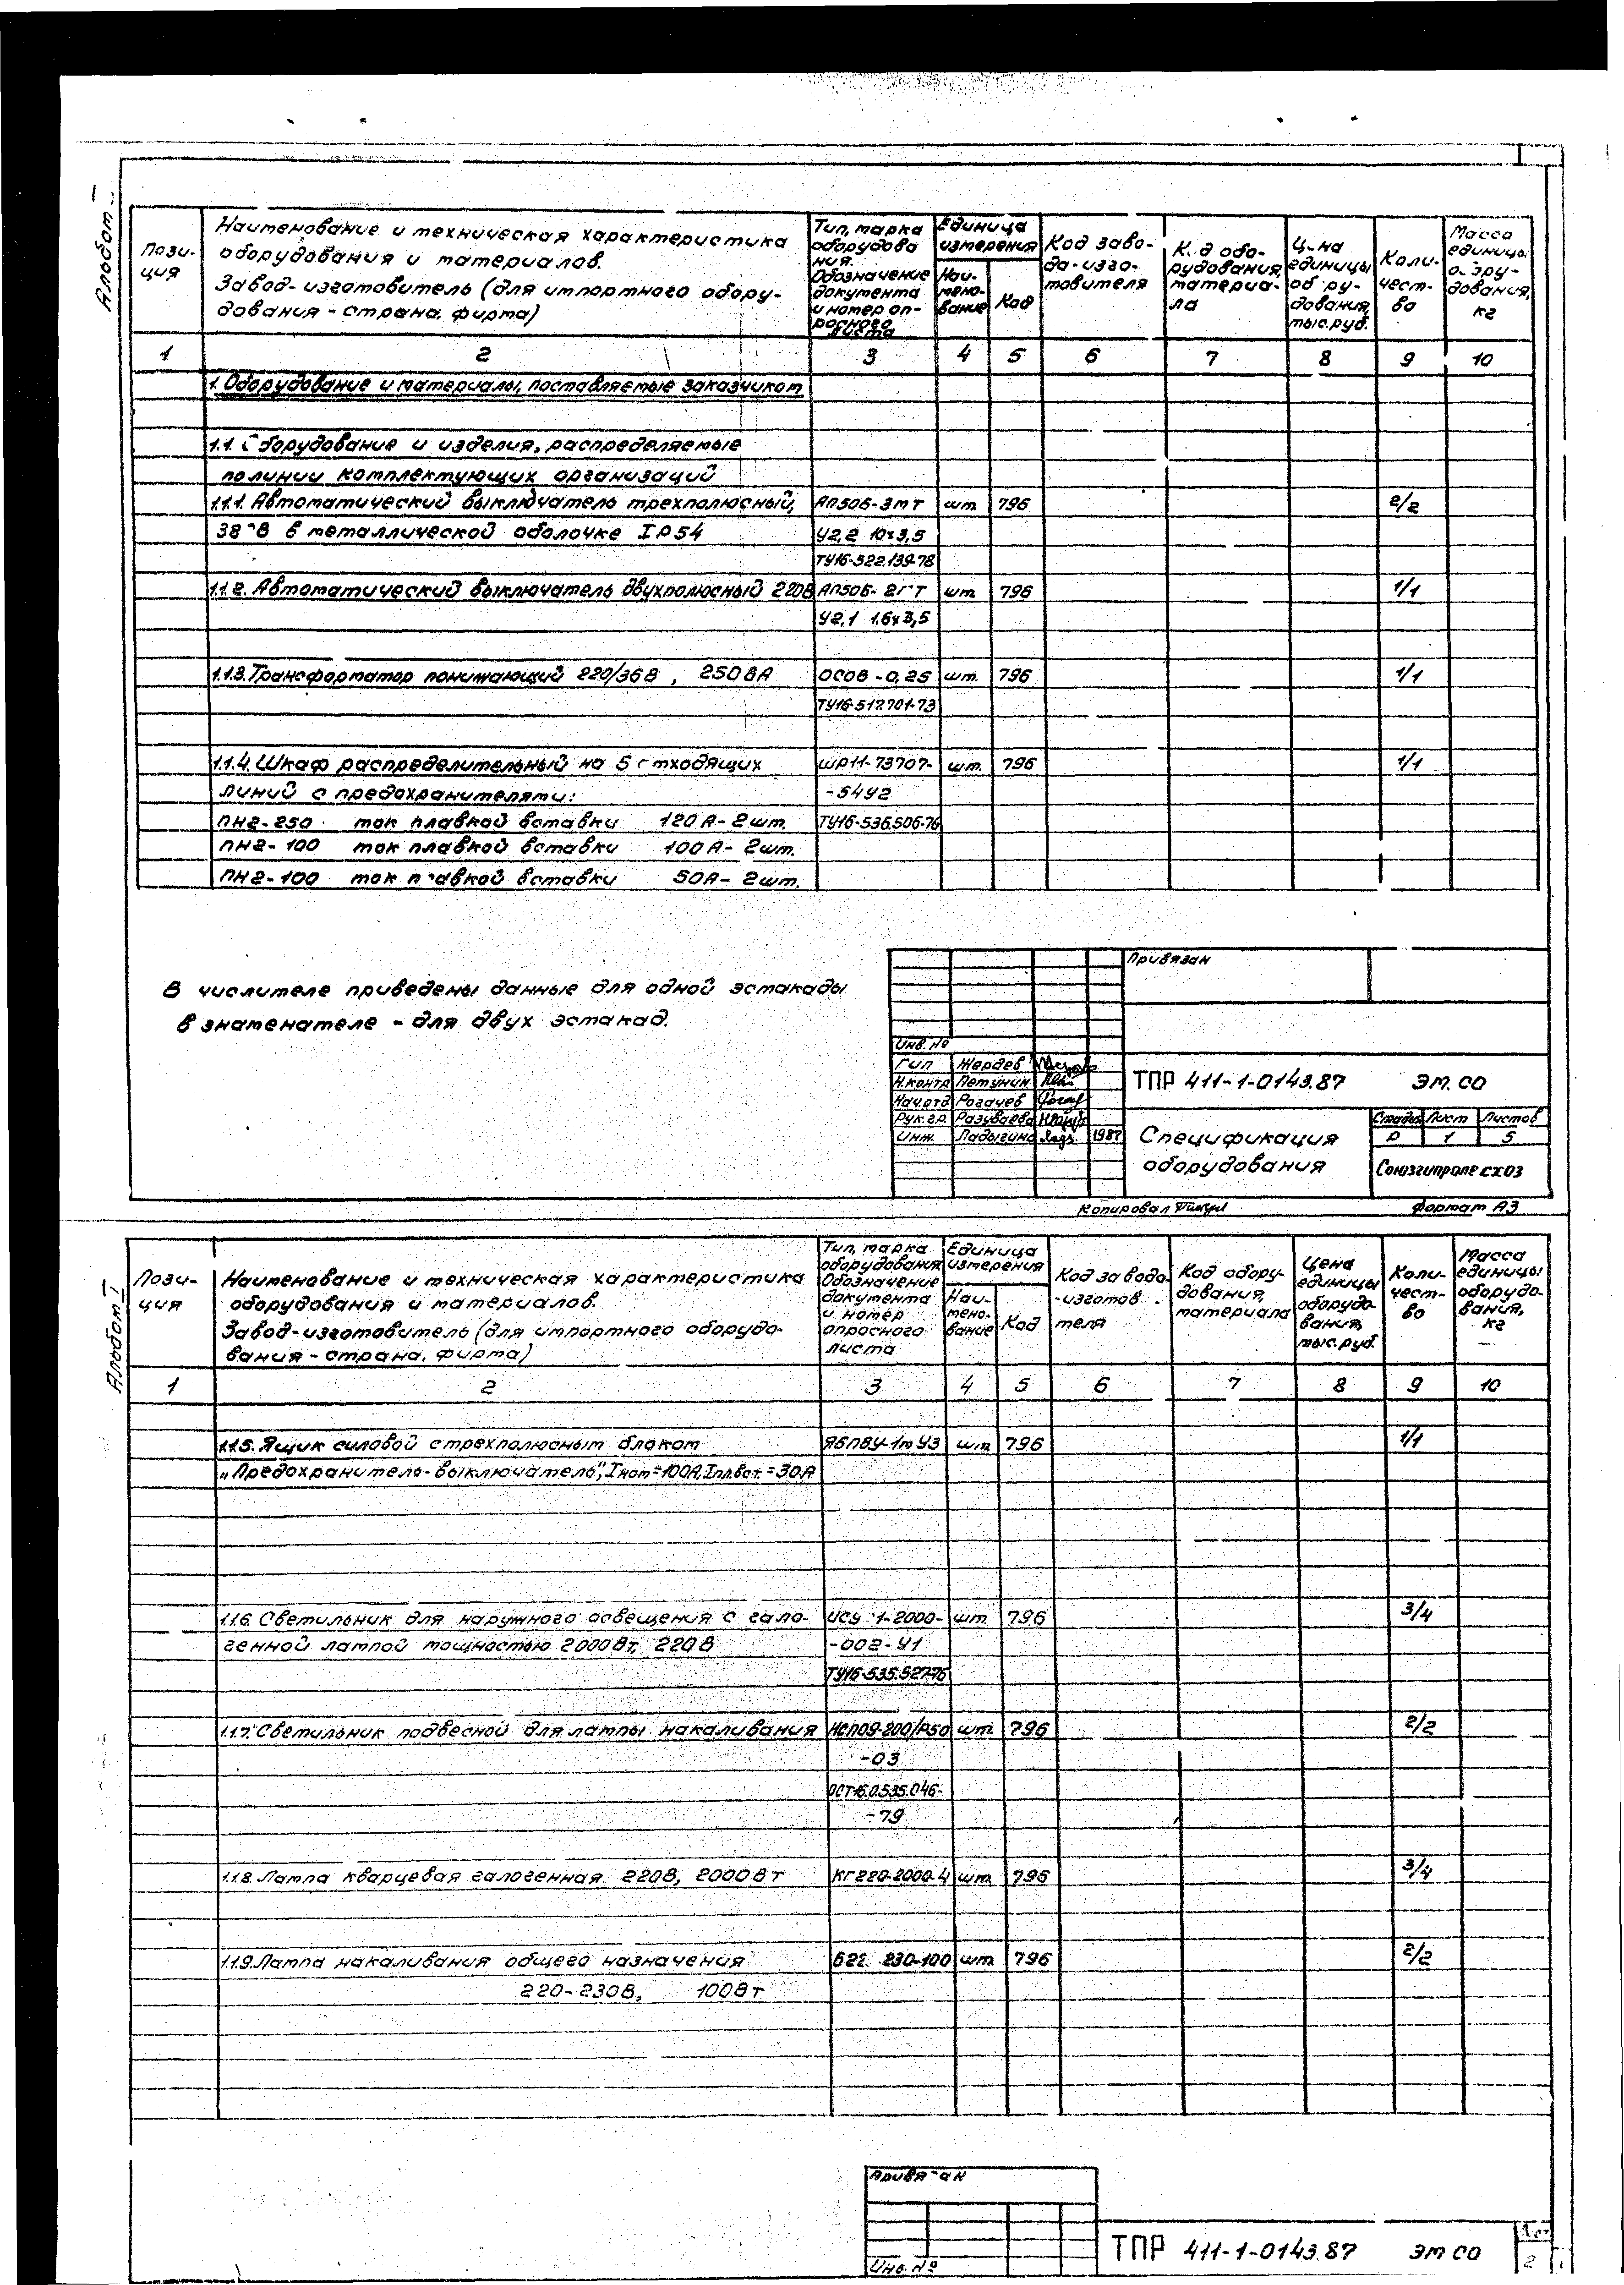 Альбом I
Пози-
ция
Наименование и техническая характеристика
оборудования и материалов.
Завод-изготовитель (для импортного обору-
дования - страна, фирма)
Тип, марка
оборудова
ния.
Обозначение
документа
и номер оп-
росного
листа
Единица
измерения
Наи-
мено-
вание
Код
Код заво-
да-изго-
товителя
К.д обо-
рудования,
материа-
ла
Ц-на
единицы
об ру-
дования,
тыс.руб.
Коли-
чест-
во
Масса
единицы
о. ру-
дования,
кг
1 2 3 4 5 6 7 8 9 10
1. Оборудование и материалы, поставляемые заказчиком
1.1. Оборудование и изделия, распределяемые
по линии комплектующих организаций
1.1.1. Автоматический выключатель трехполюсный, АП50Б-3МТ шт. 796 2/2
38 В в металлической оболочке IP54 У2,2 10х3,5
ТУ16-522.139-78
1.1.2. Автоматический выключатель двухполюсный 220В АП50Б-2 Т шт. 796 1/1
У2,1 1,6х3,5
1.1.3. Трансформатор понижающий 220/36В, 250ВА ОСОВ-0,25 шт. 796 1/1
ТУ16-517.701-73
1.1.4. Шкаф распределительный на 5 отходящих ШР11-73707- шт. 796 1/1
линий с предохранителями: -54У2
ПН2-250 ток плавкой вставки 120А-2шт. ТУ16-536.506-76
ПН2-100 ток плавкой вставки 100А-2шт.
ПН2-100 ток п авкой вставки 50А-2шт.
В числителе приведены данные для одной эстакады
в знаменателе - для двух эстакад.
Привязан
Инв. №
Гип Жердев
Н.контр Петунин
Нач.отд Рогачев
Рук.гр. Разуваева
Инж. Ладыгина 1987
ТПР 411-1-0143.87 ЭМ.СО
Спецификация
оборудования
Стадия Лист Листов
Р 1 5
Союзгипролесхоз
Копировал
Формат А3
Альбом I
Пози-
ция
Наименование и техническая характеристика
оборудования и материалов.
Завод-изготовитель (для импортного оборудо-
вания - страна, фирма)
Тип, марка
оборудования
Обозначение
документа
и номер
опросного
листа
Единица
измерения
Наи-
мено-
вание
Код
Код завода
-изготов -
теля
Код обору-
дования,
материала
Цена
единицы
оборудо-
вания,
тыс.руб.
Коли-
чест-
во
Масса
единицы
оборудо-
вания,
кг
1 2 3 4 5 6 7 8 9 10
1.1.5. Ящик силовой с трехполюсным блоком ЯБПВУ-1м У3 шт. 796 1/1
„Предохранитель-выключатель", Iном=100А, Iпл.вст.=30А
1.1.6. Светильник для наружного освещения с гало- ИСУ 1-2000- шт. 796 3/4
генной лампой мощностью 2000Вт, 220В -002-У1
ТУ16-535.527-76
1.1.7. Светильник подвесной для лампы накаливания НСП09-200/Р50 шт. 796 2/2
-03
ОСТ16.0.535.046-
-79
1.1.8. Лампа кварцевая галогенная 220В, 2000Вт КГ220-2000-4 шт. 796 3/4
1.1.9. Лампа накаливания общего назначения 230-100 шт. 796 2/2
220-230В, 100Вт
Привя ан
Инв. №
ТПР 411-1-0143.87 ЭМ СО
Лист
2